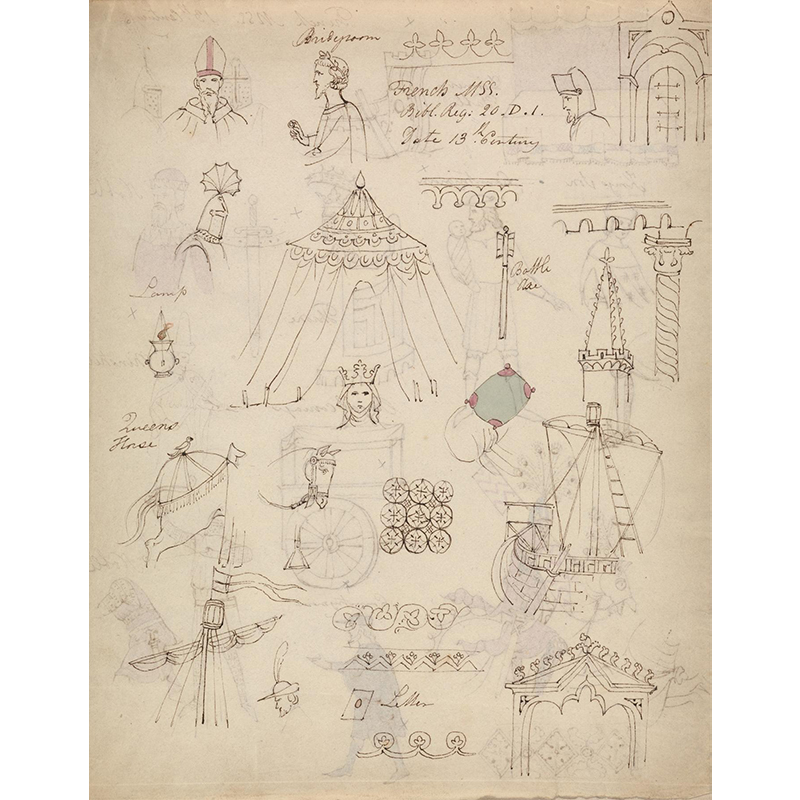 Bridegroom
French MSS.
Bibl. Reg: 20. D. 1.
Date 13th Century
Lamp
Battle
Axe
Queens
Horse
Letter